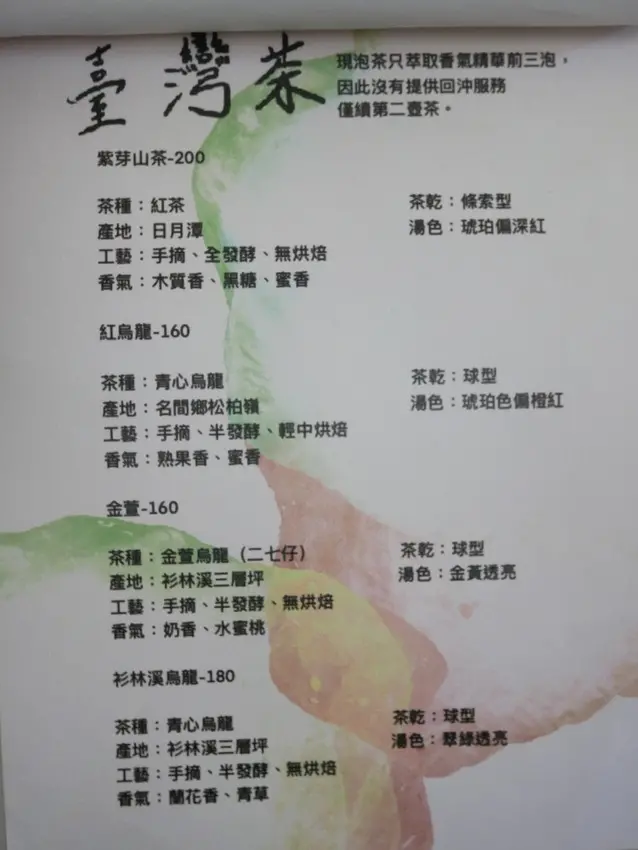 臺灣茶
現泡茶只萃取香氣精華前三泡，
因此沒有提供回沖服務
僅續第二壺茶。
紫芽山茶-200
茶種：紅茶
茶乾：條索型
產地：日月潭
湯色：琥珀偏深紅
工藝：手摘、全發酵、無烘焙
香氣：木質香、黑糖、蜜香
紅烏龍-160
茶種：青心烏龍
茶乾：球型
產地：名間鄉松柏嶺
湯色：琥珀色偏橙紅
工藝：手摘、半發酵、輕中烘焙
香氣：熟果香、蜜香
金萱-160
茶種：金萱烏龍（二七仔）
茶乾：球型
產地：衫林溪三層坪
湯色：金黃透亮
工藝：手摘、半發酵、無烘焙
香氣：奶香、水蜜桃
衫林溪烏龍-180
茶種：青心烏龍
茶乾：球型
產地：衫林溪三層坪
湯色：翠綠透亮
工藝：手摘、半發酵、無烘焙
香氣：蘭花香、青草